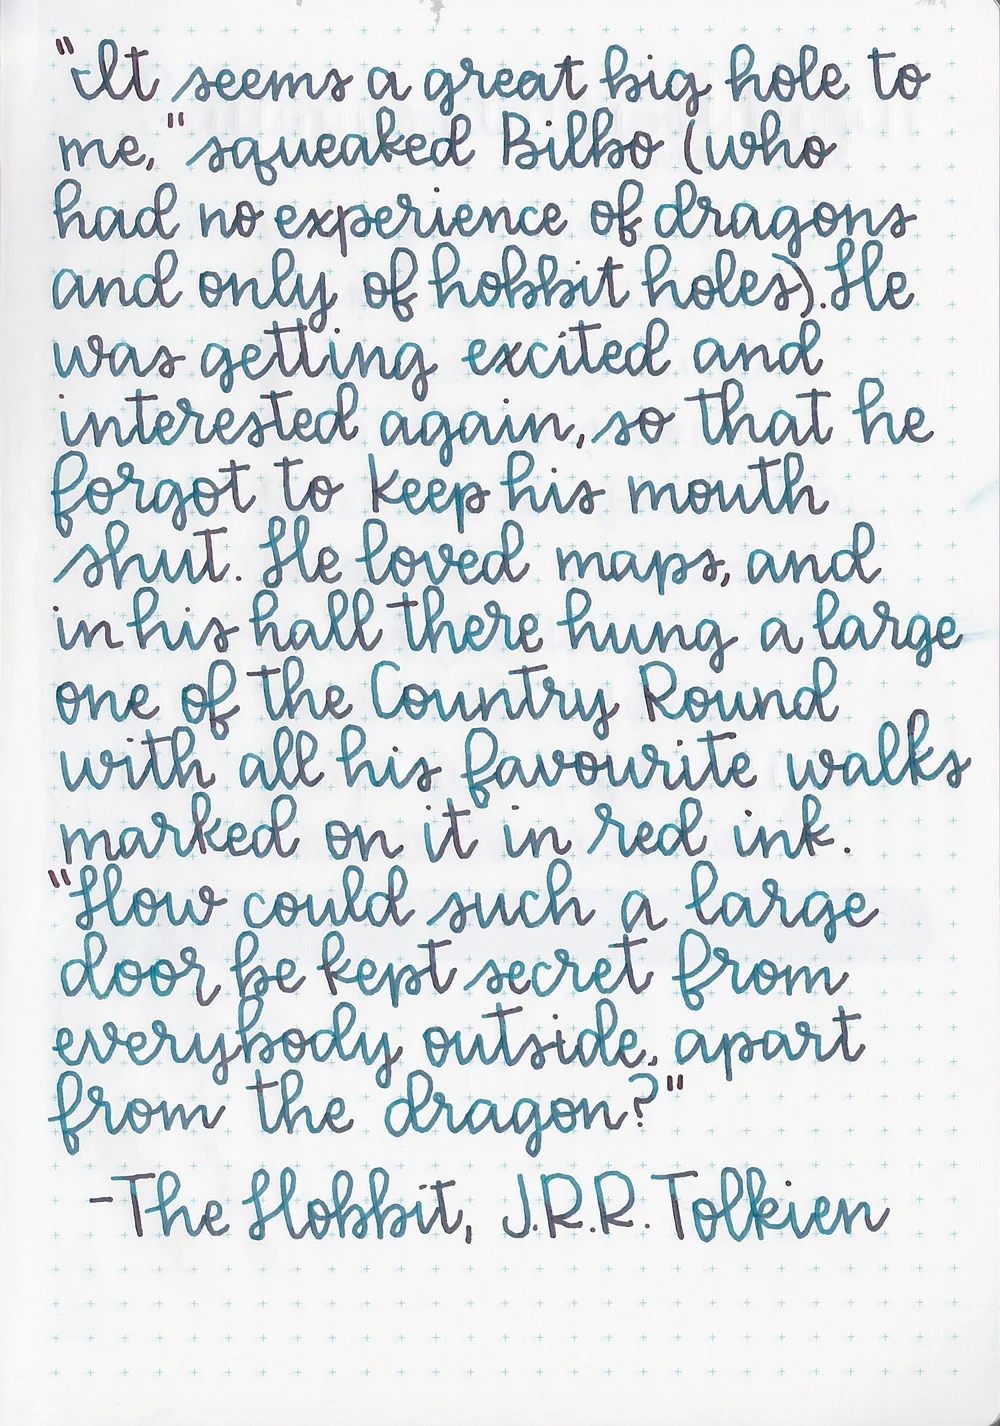 "It seems a great big hole to
me," squeaked Bilbo (who
had no experience of dragons
and only of hobbit holes). He
was getting excited and
interested again, so that he
forgot to keep his mouth
shut. He loved maps, and
in his hall there hung a large
one of the Country Round
with all his favourite walks
marked on it in red ink.
"How could such a large
door be kept secret from
everybody outside, apart
from the dragon?"
-The Hobbit, J.R.R. Tolkien